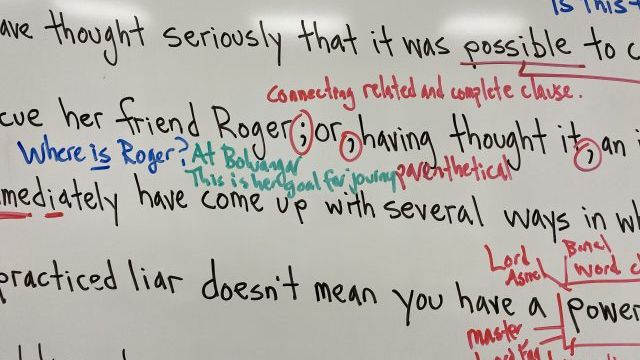 Is This
ave thought seriously that it was possible to c
Connecting related and complete clause.
cue her friend Roger; or, having thought it, an i
Where is Roger? At Bolvangar
This is her goal for journy parenthetical
mediately have come up with several ways in wh
Lord Asriel
word c
practiced liar doesn't mean you have a power
master